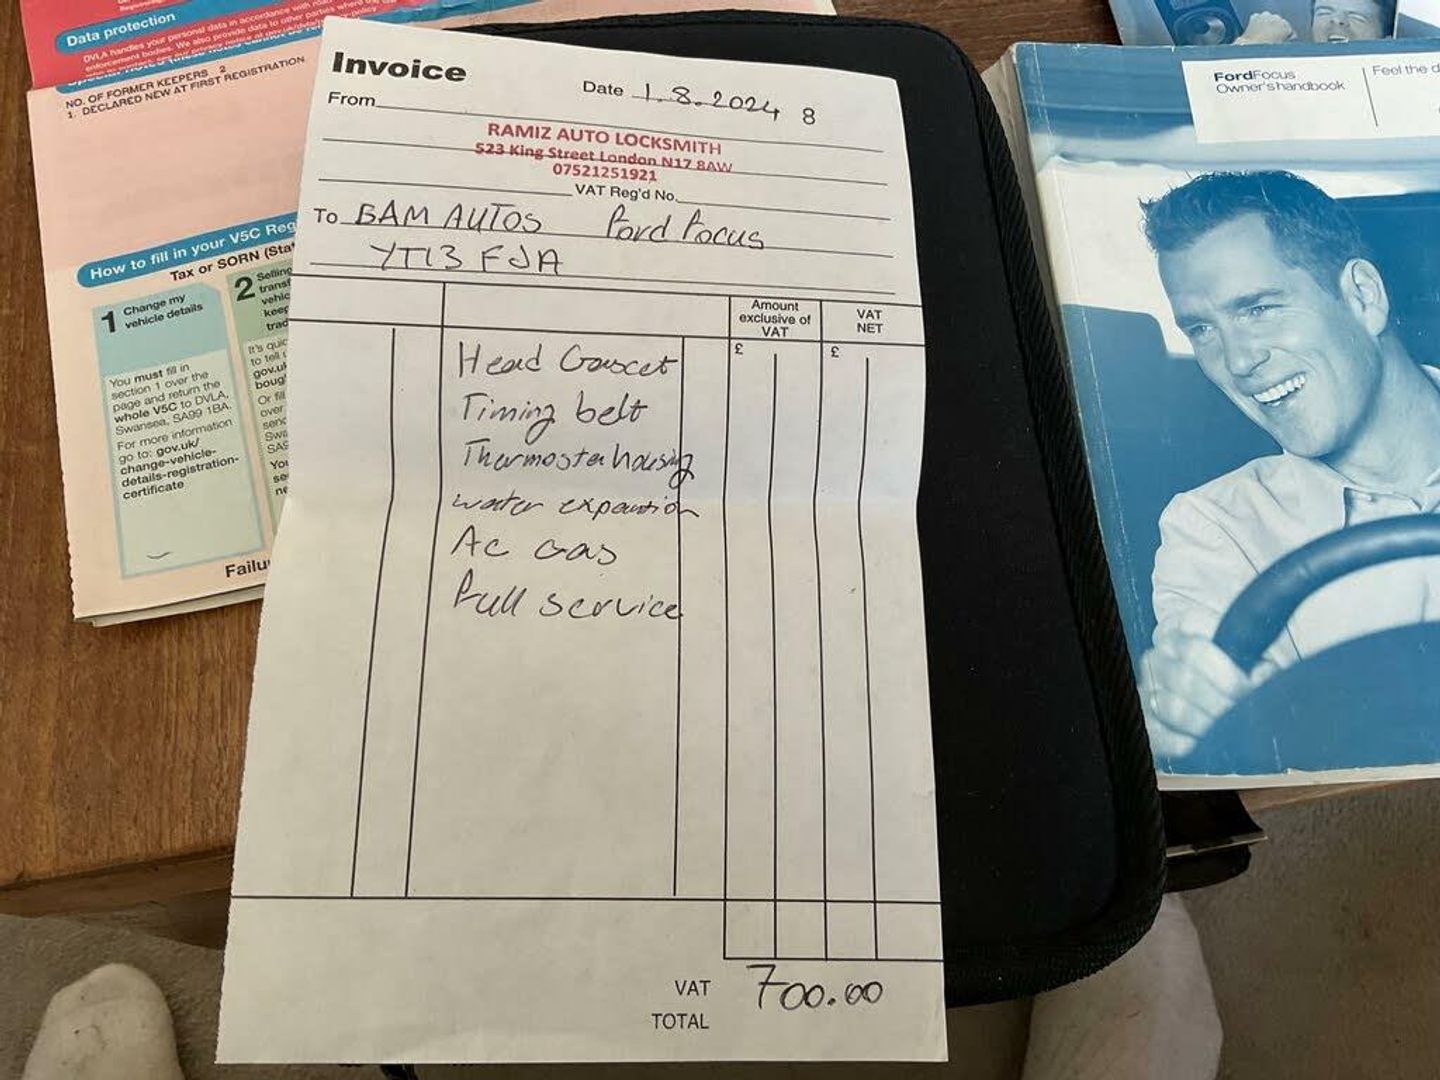 Data protection
DVLA handles your personal data in accordance with road
enforcement bodies. We also provide data to other parties where the law
NO. OF FORMER KEEPERS 2
1. DECLARED NEW AT FIRST REGISTRATION
How to fill in your V5C Reg
Tax or SORN (Stat
1 Change my
vehicle details
You must fill in
section 1 over the
page and return the
whole V5C to DVLA,
Swansea, SA99 1BA.
For more information
go to: gov.uk/
change-vehicle-
details-registration-
certificate
2 Selling
transf
vehic
keep
trad
It's quic
to tell
gov.uk
bough
Or fill
over
send
Swa
SA9
You
se
ne
Failu
Invoice
Date 1.8.2024 8
From
RAMIZ AUTO LOCKSMITH
523 King Street London N17 8AW
07521251921
VAT Reg'd No.
To BAM AUTOS Ford Focus
YT13 FJA
Amount
exclusive of
VAT
VAT
NET
£ £
Head Gascet
Timing belt
Thermoster housing
water expantion
Ac Gas
Full service
VAT 700.00
TOTAL
FordFocus
Owner's handbook
Feel the d